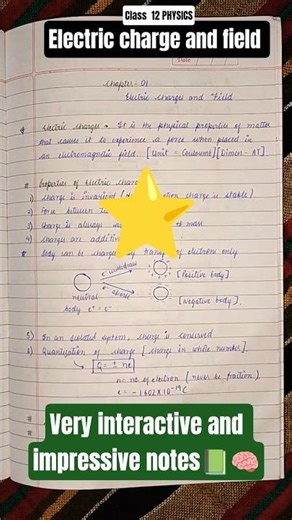 Class 12 PHYSICS
Electric charge and field
Date
Chapter - 01
Electric Charges and Field
Electric charges → It is the physical properties of matter
that causes it to experience a force when placed in
an electromagnetic field. [Unit = Coulomb] [Dimen - AT]
Properties of Electric Char
1) Charge is invariant ( charge is stable)
2) Force between
3) Charge is always mass
4) Charges are additi
Body can be charged by transf of electrons only
withdraw
[Positive body]
neutral
body e⁺ = e⁻
[Negative body].
5) In an isolated system, charge is conserved.
6) Quantization of charge [charge in whole number].
Q = ± ne
n = no of electron (never be fraction).
e = -1.602 × 10⁻¹⁹ C
Very interactive and
impressive notes📗🧠